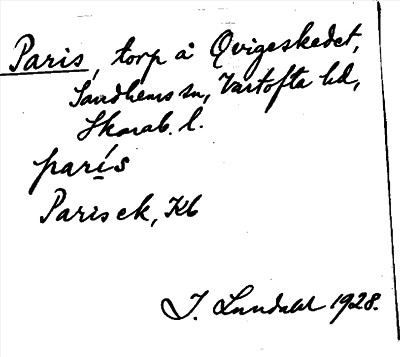 Paris, torp å Qvigeskedet,
Sandhems sn, Vartofta hd,
Skarab. l.
parís
Parisek, Kb
I. Lundahl 1928.